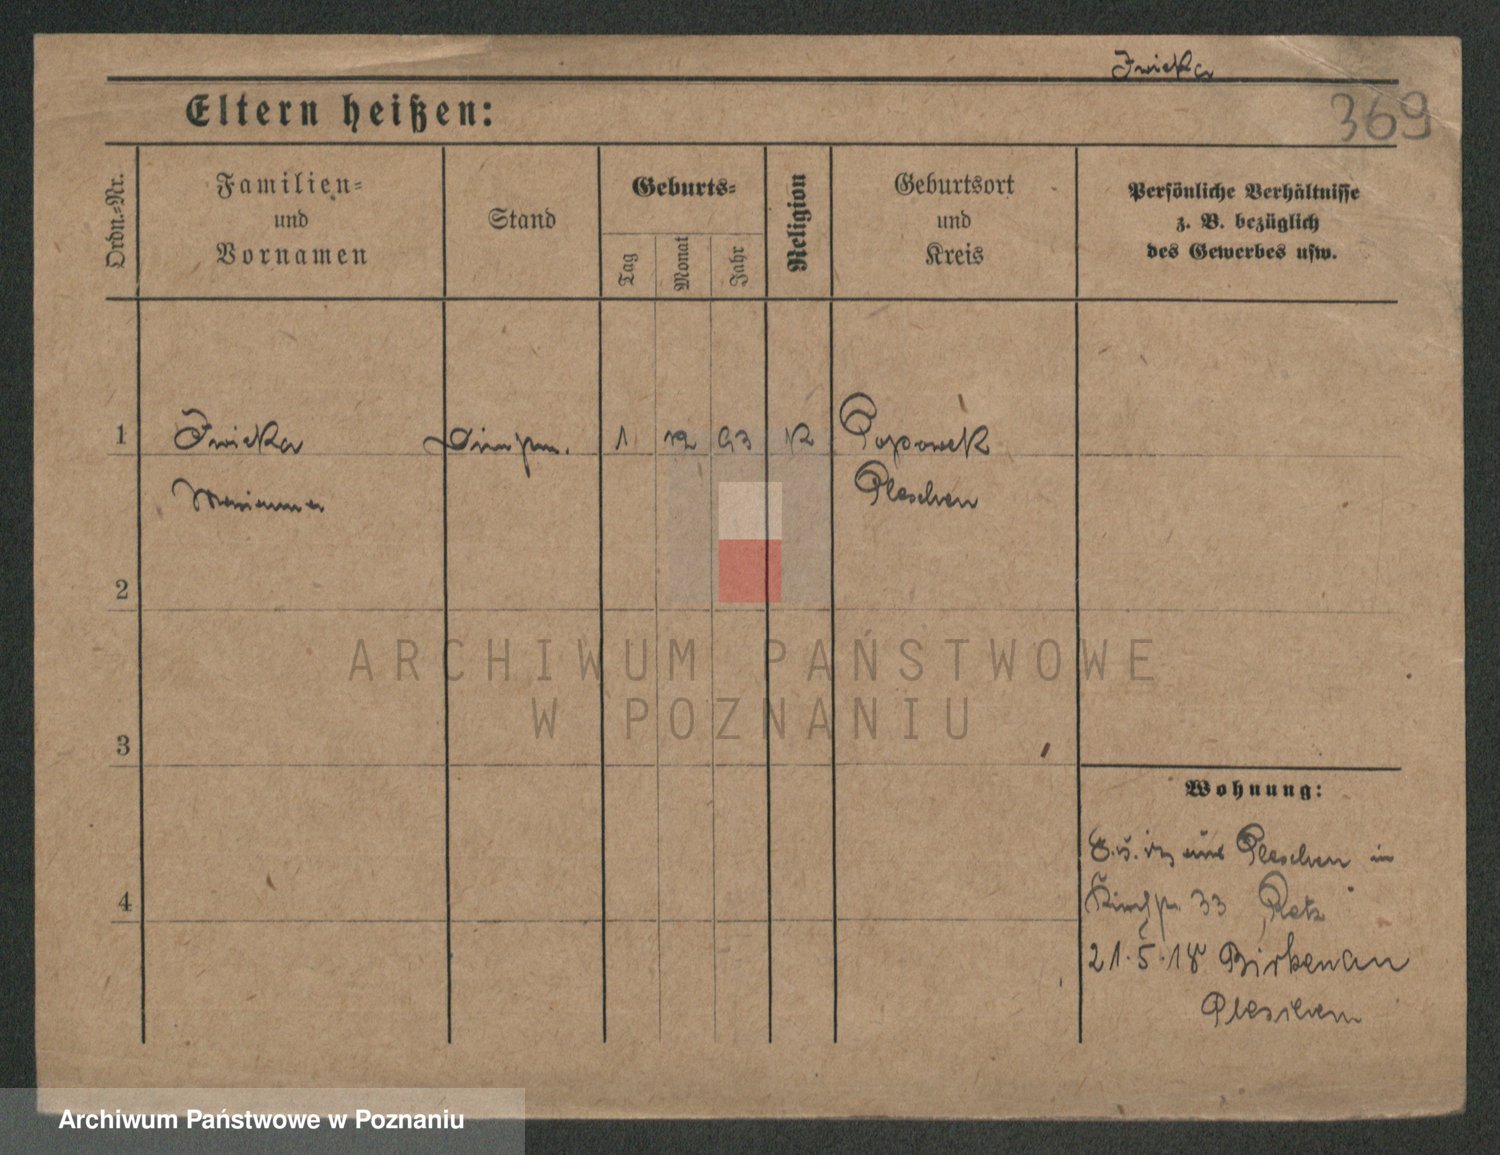 Zwicka
369
Eltern heißen:
Ordn.-Nr.
Familien-
und
Vornamen
Stand
Geburts-
Tag
Monat
Jahr
Religion
Geburtsort
und
Kreis
Persönliche Verhältnisse
z. B. bezüglich
des Gewerbes usw.
1
1
K
Popowek
Marianna
Pleschen
2
ARCHIWUM PAŃSTWOWE
W POZNANIU
3
Wohnung:
Pleschen in
33
4
21.5.18 Birkenau
Pleschen
Archiwum Państwowe w Poznaniu